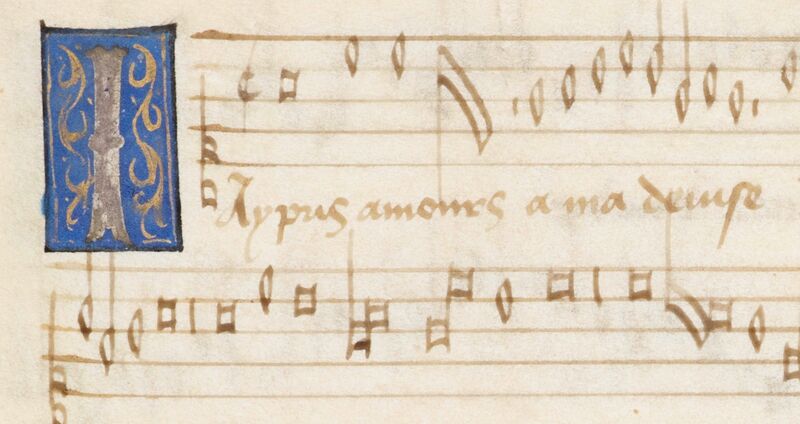 I Aypris amours a ma deuise